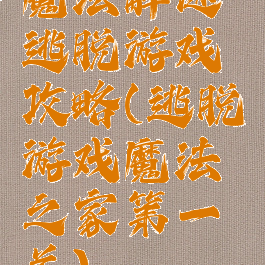 魔法解谜
逃脱游戏
攻略(逃脱
游戏魔法
之家第一
关)